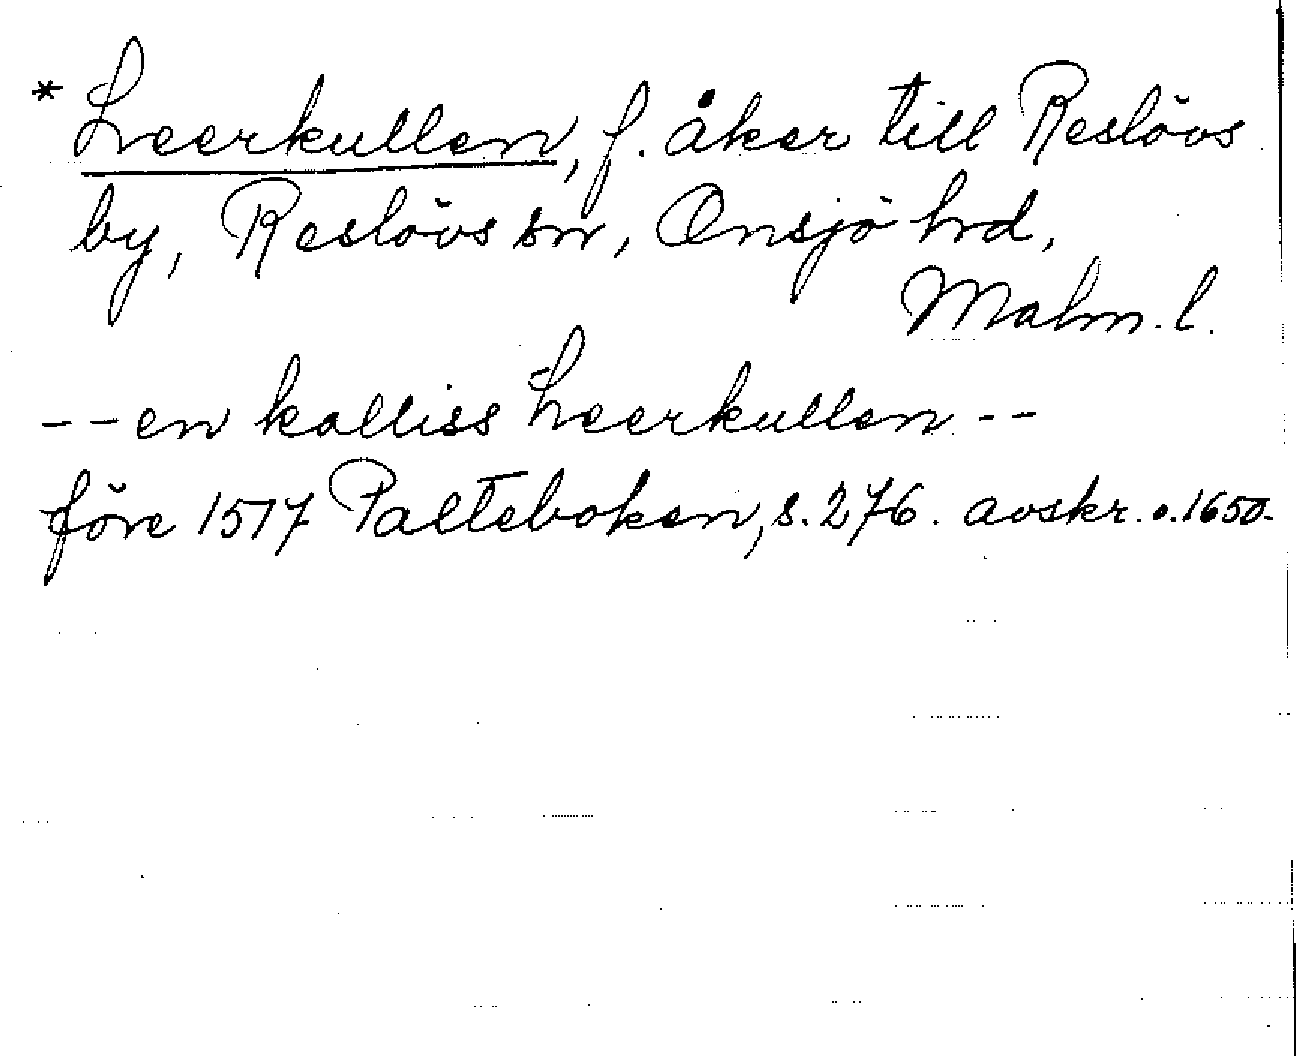 * Leerkullen, f. åker till Reslövs
by, Reslövs sn, Onsjö hrd,
Malm. l.
-- en kalliss Leerkullen --
före 1517 Palteboken, s. 276. avskr. o. 1650.